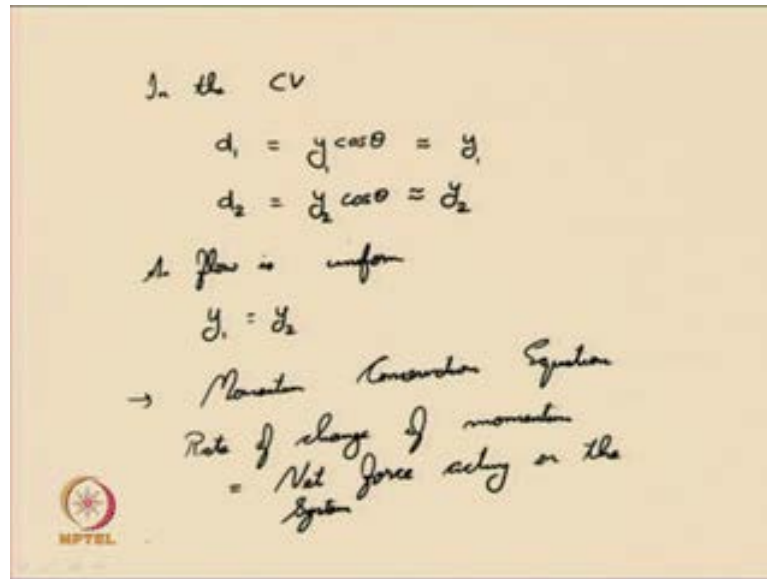 In the CV
d₁ = y₁ cosθ = y₁
d₂ = y₂ cosθ ≈ y₂
As flow is uniform
y₁ = y₂
→ Momentum Conservation Equation
Rate of change of momentum
= Net force acting on the
System
NPTEL